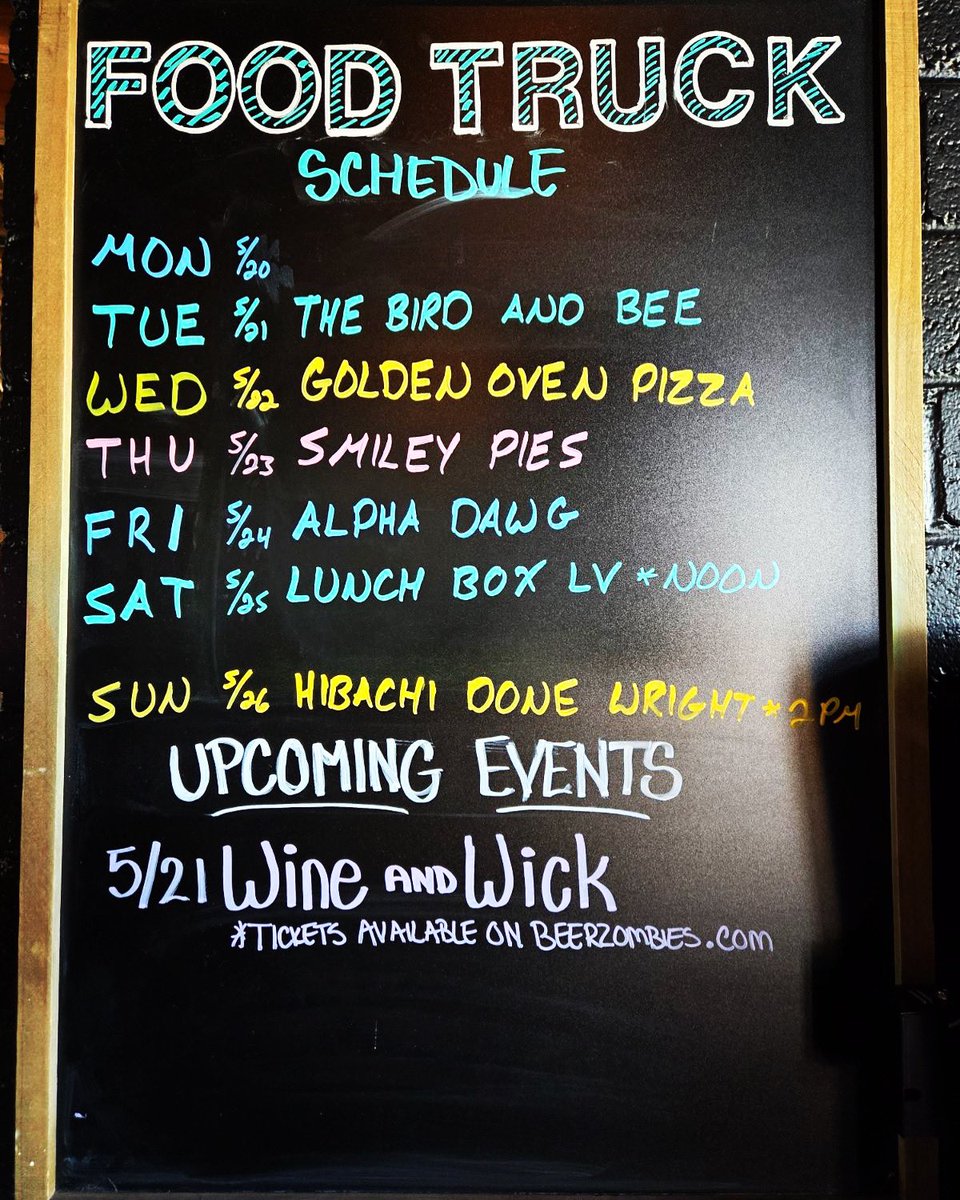 FOOD TRUCK
SCHEDULE
MON 5/20
TUE 5/21 THE BIRD AND BEE
WED 5/22 GOLDEN OVEN PIZZA
THU 5/23 SMILEY PIES
FRI 5/24 ALPHA DAWG
SAT 5/25 LUNCH BOX LV *NOON
SUN 5/26 HIBACHI DONE WRIGHT *2PM
UPCOMING EVENTS
5/21 Wine AND Wick
*TICKETS AVAILABLE ON BEERZOMBIES.COM